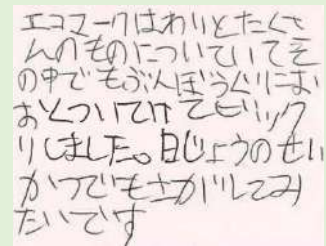 エコマークはわりとたくさ
んのものについていてそ
の中でもぶんぼうぐにお
おくついてけてビック
りしました。日じょうのせい
かつでもさがしてみ
たいです